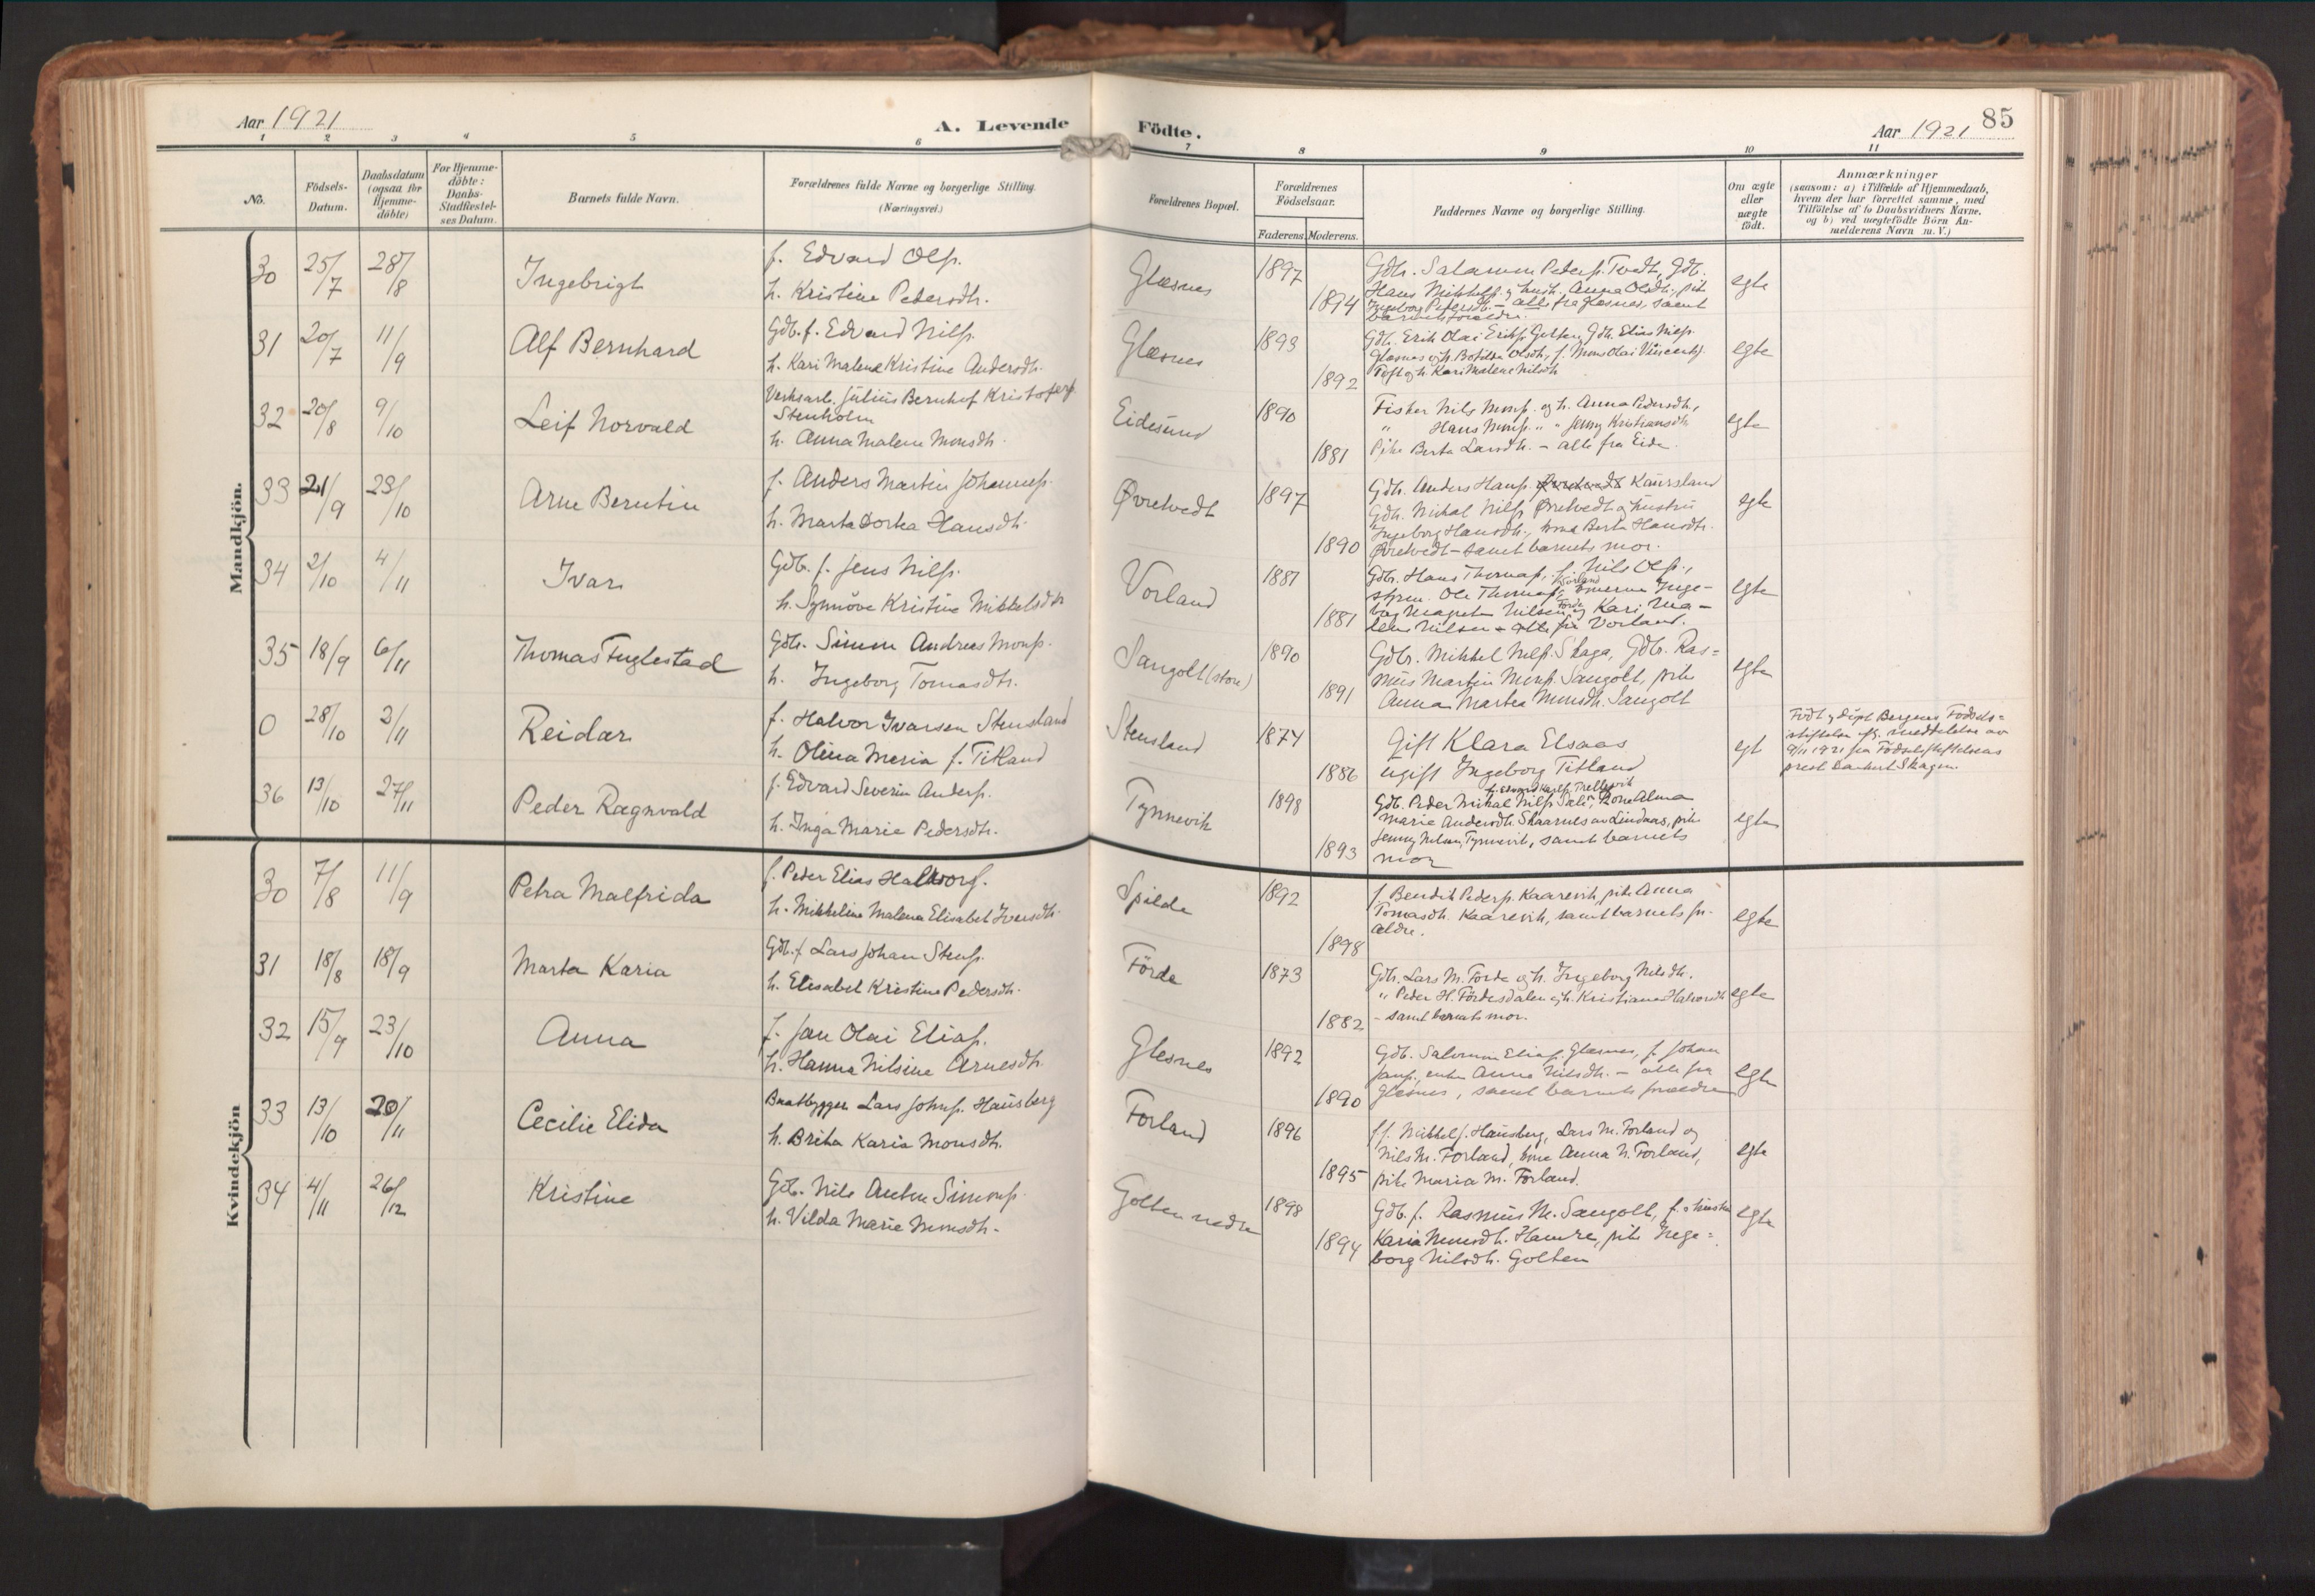 Aar 1921
A. Levende
Födte.
Aar 1921
85
1 2 3 4 5 6 7 8 9 10 11
No.
Födsels-
Datum.
Daabsdatum
(ogsaa for
Hjemme-
döbte)
For Hjemme-
döbte:
Daabs-
Stadfæstel-
ses Datum.
Barnets fulde Navn.
Forældrenes fulde Navne og borgerlige Stilling.
(Næringsvei.)
Forældrenes Bopæl.
Forældrenes
Födselsaar.
Faderens. Moderens.
Faddernes Navne og borgerlige Stilling.
Om ægte
eller
uægte
födt.
Anmærkninger
(saasom: a) i Tilfælde af Hjemmedaab,
hvem der har forrettet samme, med
Tilföielse af to Daabsvidners Navne,
og b) ved uægtefödte Börn An-
melderens Navn m.V.)
Mandkjön.
30 25/7 28/8 Ingebrigt
f. Edvard Olss.
h. Kristine Pedersdtr.
Glæsnes 1897 1894
Gdbr. Salamon Peders. Tvedt, Gdb.
Hans Mikkels. og hust. Anna Olsdtr., pike
Ingeborg Pedersdtr. - alle fra Glæsnes, samt
barnets forældre.
egte
31 20/7 11/9 Alf Bernhard
Gdb. f. Edvard Nilss.
h. Kari Malene Kristine Andersdtr.
Glæsnes 1893 1892
Gdb. Erik Olai Eriks. Golten, Gdb. Elias Nilss.
Glæsnes og h. Botilda Olsdtr., f. Mons Olai Vincents.
Toft og h. Kari Malene Nilsdtr
egte
32 20/8 9/10 Leif Norvald
Verksarb. Julius Bernhof Kristofers.
Stenholm
h. Anna Malene Monsdtr.
Eidesund 1890 1881
Fisker Nils Monss. og h. Anna Pedersdtr.,
" Hans Monss. " " Jenny Kristiansdtr.
Pike Berta Larsdtr. - alle fra Eide.
egte
33 21/9 23/10 Arne Berntin
f. Anders Martin Johanness.
h. Marta Dortea Hansdtr.
Øvretvedt 1897 1890
Gdb. Anders Hanss. Øvretvedt Kausland
Gdb. Mikal Nilss. Øvretvedt og hustru
Ingeborg Hansdtr., kone Berta Hansdtr.
Øvretvedt - samt barnets mor.
egte
34 2/10 4/11 Ivar
Gdb. f. Jens Nilss.
h. Synnöve Kristine Mikkelsdtr
Vorland 1881 1881
Gdb. Hans Thomas., f. Nils Olss.,
Ole Thomass. Inge-
borg Nilsen og Kari Ma-
lene Nilsen - alle fra Vorland.
egte
35 18/9 6/11 Thomas Fuglestad
Gdb. Simon Andreas Monss.
h. Ingeborg Tomasdtr.
Sangolt (store) 1890 1891
Gdbr. Mikkel Nilss. Skaga, Gdbr. Ras=
mus Martin Monss. Sangolt, pike
Anna Martea Monsdtr. Sangolt
egte
0 28/10 2/11 Reidar
f. Halvor Ivarsen Stensland
h. Olina Maria f. Titland
Stensland 1874 1886
Gift Klara Elsaas
ugift Ingeborg Titland
egt
Födt og döpt Bergens Födsels=
stiftelse efter meddelelse av
9/11 1921 fra Födselsstiftelsens
prest Skagen.
36 13/10 27/11 Peder Ragnvald
f. Edvard Severin Anderss.
h. Inga Marie Pedersdtr.
Tynnevik 1898 1893
Gdb. Peder Mikal Nilss. Sæle, Kone Alma
Marie Andersdtr. Skaarnes av Lindaas, pike
Jenny Nilsen, Tynnevik, samt barnets
mor
egte
Kvindekjön
30 7/8 11/9 Petra Malfrida
f. Peder Elias Halvors.
h. Mikkeline Malena Elisabet Iversdtr.
Spilde 1892 1898
f. Bendik Peders. Kaarevik, pike Anna
Tomasdtr. Kaarevik, samt barnets for-
ældre.
egte
31 18/8 18/9 Marta Karia
Gdb. f. Lars Johan Stens.
h. Elisabet Kristine Pedersdtr.
Förde 1873 1882
Gdb. Lars M. Förde og h. Ingeborg Nilsdtr.
" Peder H. Fördesdalen og h. Kristiane Halvorsdtr
- samt barnets mor.
egte
32 15/9 23/10 Anna
f. Jan Olai Elias.
h. Hanna Nilsine Arnesdtr.
Glesnes 1892 1890
Gdb. Salomon Elias. Glæsnes, f. Johan
Jans., enke Anna Nilsdtr. - alle fra
Glesnes, samt barnets forældre
egte
33 13/10 20/11 Cecilie Elida
Baatbygger Lars Johns. Hausberg
h. Brita Karia Monsdtr.
Forland 1896 1895
ff. Mikkel J. Hausberg, Lars M. Forland og
Nils M. Forland, kone Anna N. Forland,
pike Maria M. Forland.
egte
34 4/11 26/12 Kristine
Gdb. Nils Anton Simons.
h. Vilda Marie Monsdtr.
Golten nedre 1898 1894
Gdb. f. Rasmus M. Sangolt, f. hustru
Karia Monsdtr. Hamre, pike Inge=
borg Nilsdtr. Golten
egte